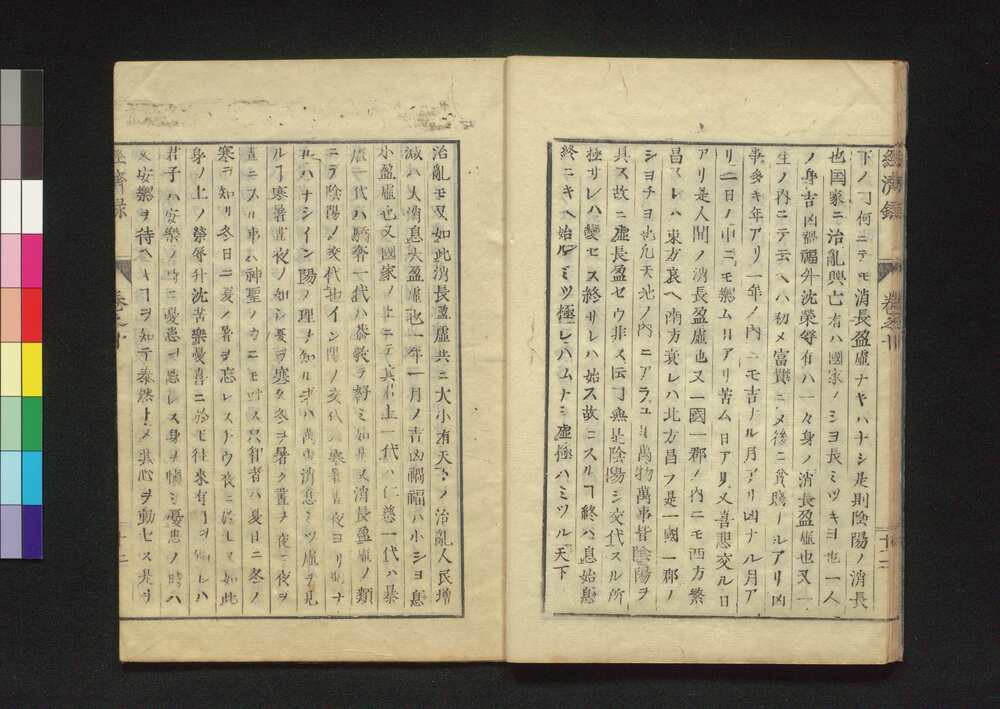 下ノ ヿ何ニテモ消長盈虛ナキハナシ是則陰陽ノ消長
也國家ニ治亂興亡有ハ國家ノシヨ長ミツキヨ也一人
ノ身吉凶禍福升沈榮辱有ハ一々身ノ消長盈虛也又一
生ノ內ニテ云ヘハ初メ富貴ニメ後ニ貧賤ナルアリ凶
事多キ年アリ一年ノ內ニモ吉ナル月アリ凶ナル月ア
リ一日ノ中ニモ樂ム日アリ苦ム日アリ又喜悲交ル日
アリ是人間ノ消長盈虛也又一國一郡ノ內ニモ西方繁
昌スレハ東方衰ヘ南方衰レハ北方昌フ是一國一郡ノ
シヨチヨ也凡天地ノ內ニアラユル萬物萬事皆陰陽ヲ
具ス故ニ虛長盈セウ非スト云ヿ無是陰陽シ交代スル所
極サレハ變セス終サレハ始ス故ニスルヿ終ハ息始息
終ニキヘ始ルミツ極レハムナシ虛極ハミツル天下
經濟錄 卷之十
治亂モ又如此消長盈虛共ニ大小有天下ノ治亂人民增
減ハ大消息大盈虛也一年一月ノ吉凶禍福ハ小シヨ息
小盈虛也又國家ノ上ニテ其君上一代ハ仁慈一代ハ暴
虐一代ハ驕奢一代ハ恭儉ヲ好ミ如是又消長盈虛ノ類
ニテ陰陽ノ交代也イン陽ノ交代ハ寒暑晝夜ヨリ明ナ
ルハナシイン陽ノ理ヲ知ル者ハ萬ツ消息ミツ虛ヲ見
ルヿ寒暑晝夜ノ如シ夏ヲ寒ク冬ヲ暑ク晝ヲ夜ニ夜ヲ
晝ニスル事ハ神聖ノカニモ叶ス只智者ハ夏日ニ冬ノ
寒ヲ知リ冬日ニ夏ノ暑ヲ忘レスチウ夜ニ於モ又如此
身ノ上ノ榮辱升沈苦樂憂喜ニ於モ往來有ヿヲ知レハ
君子ハ安樂ノ時ニ憂患ヲ忘レス身ヲ愼ミ憂患ノ時ハ
又安樂ヲ待ヘキヿヲ知テ泰然トメ其心ヲ動セス是ヲ
經濟錄 卷之十